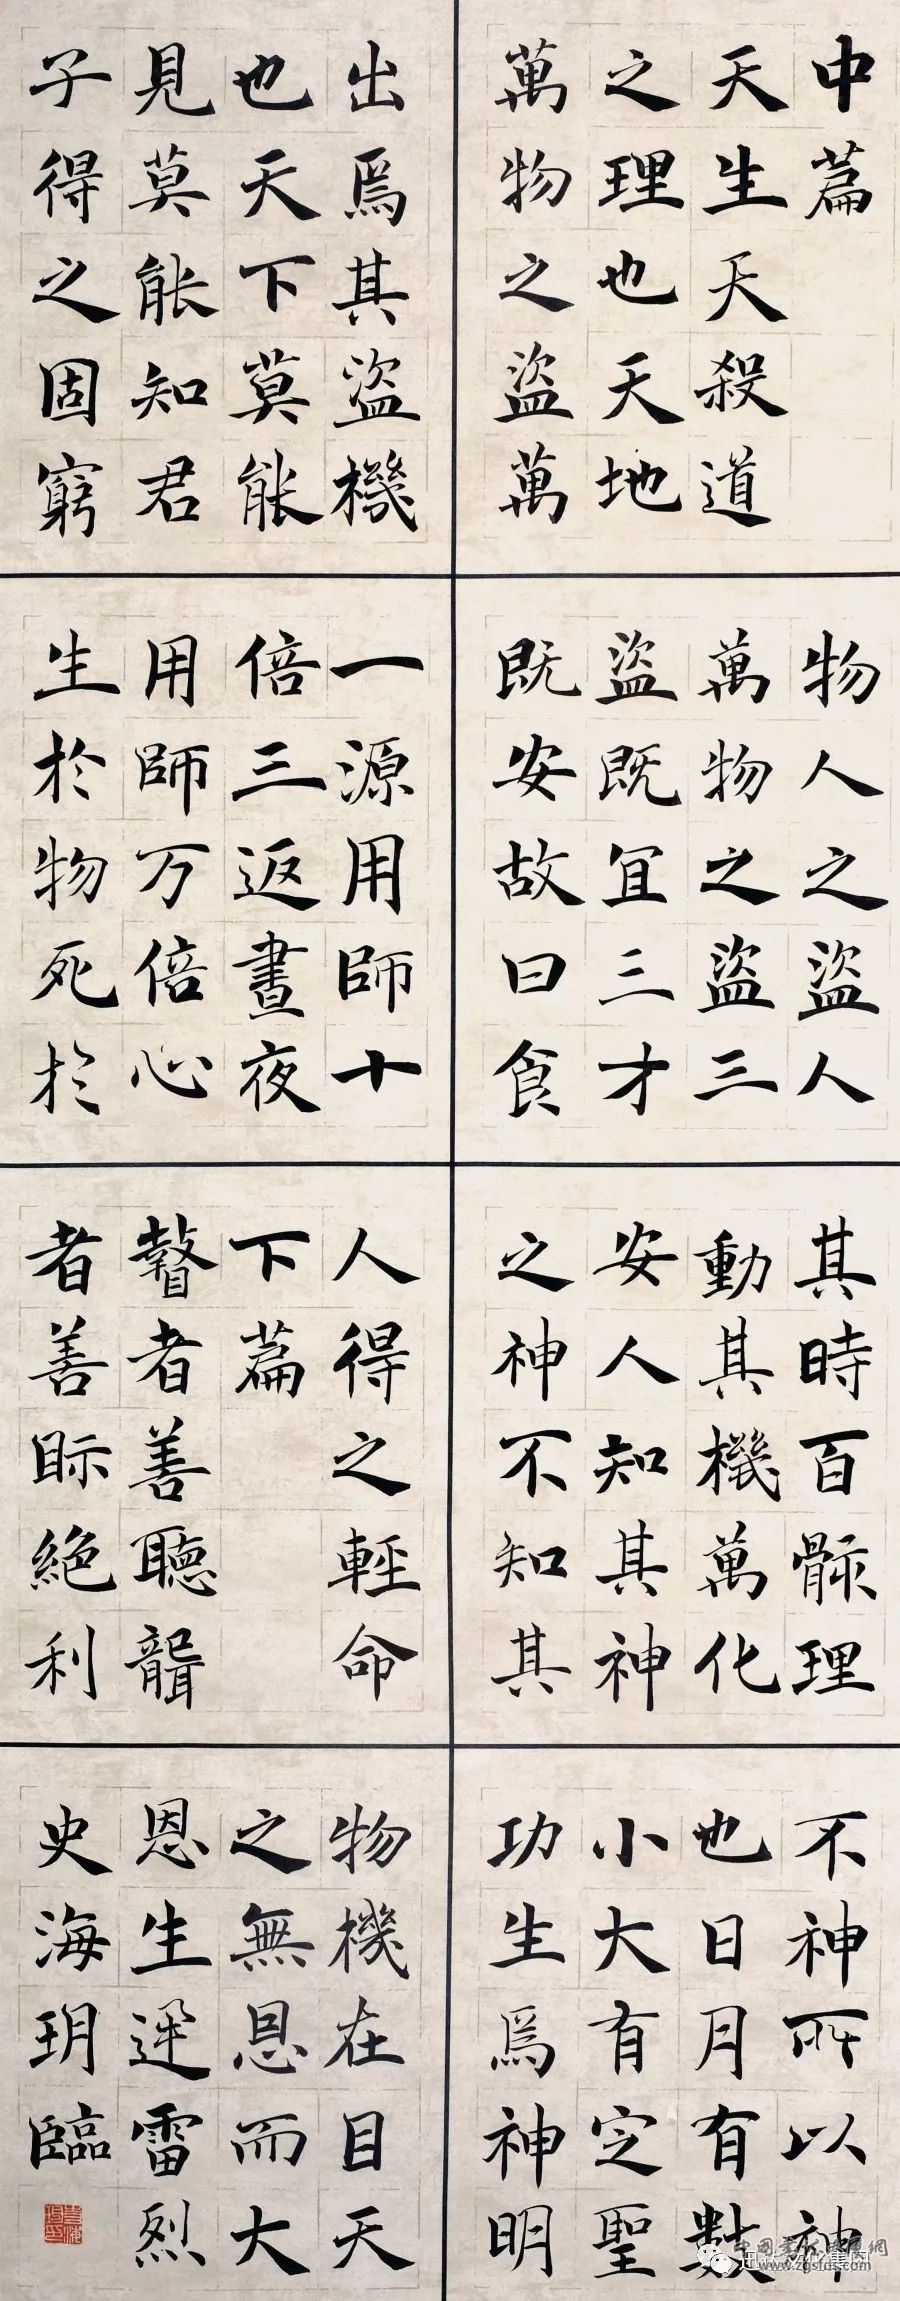 中篇
天生天殺道
之理也天地
萬物之盜萬
物人之盜人
萬物之盜三
盜既冝三才
既安故曰食
其時百骸理
動其機萬化
安人知其神
之神不知其
不神所以神
也日月有數
小大有定聖
功生焉神明
出焉其盜機
也天下莫能
見莫能知君
子得之固窮
一源用師十
倍三返晝夜
用師万倍心
生於物死於
人得之輕命
下篇
瞽者善聽聾
者善眎絕利
物機在目天
之無恩而大
恩生迅雷烈
史海玥臨
www.zgsfds.com